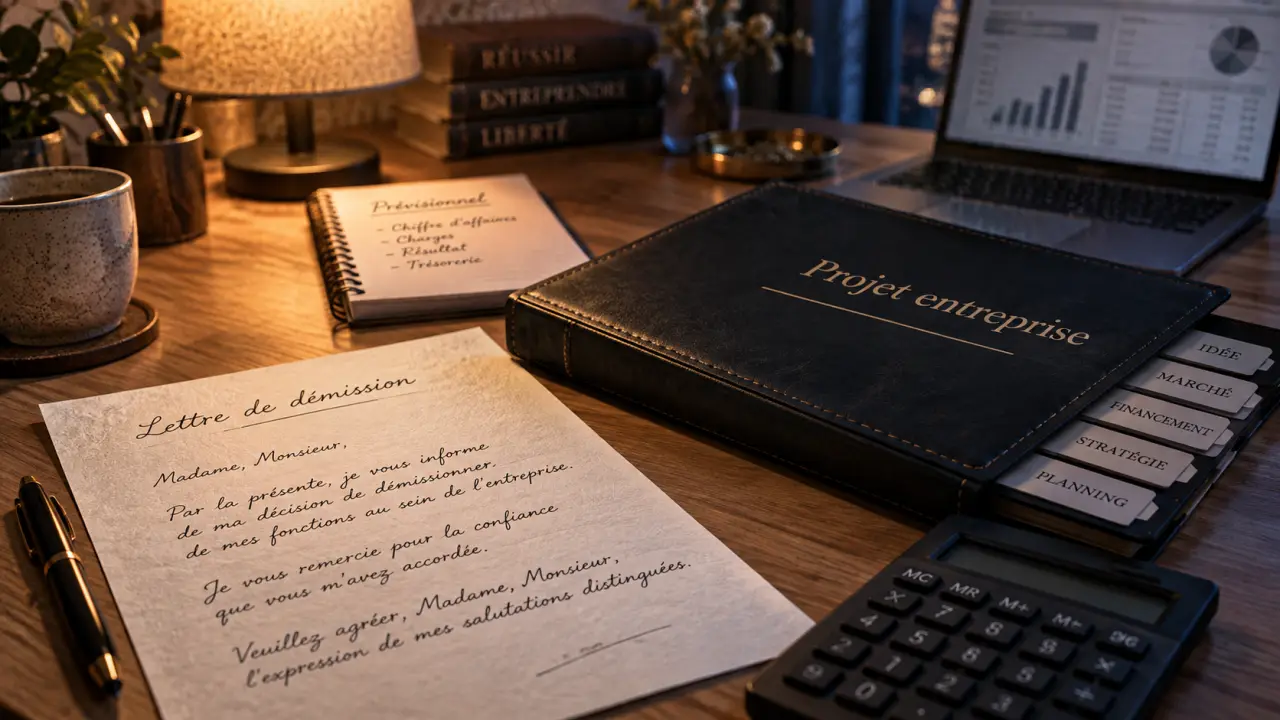 RÉUSSIR
ENTREPRENDRE
LIBERTÉ
Prévisionnel
- Chiffre d'affaires
- Charges
- Résultat
- Trésorerie
Projet entreprise
IDÉE
MARCHÉ
FINANCEMENT
STRATÉGIE
PLANNING
Lettre de démission
Madame, Monsieur,
Par la présente, je vous informe
de ma décision de démissionner.
de mes fonctions au sein de l'entreprise.
Je vous remercie pour la confiance
que vous m'avez accordée.
Veuillez agréer, Madame, Monsieur,
l'expression de mes salutations distinguées.
MC MR M+ M= 96
X 7 8 8
4 5 8 X
2 1 2 3 ÷
9 0